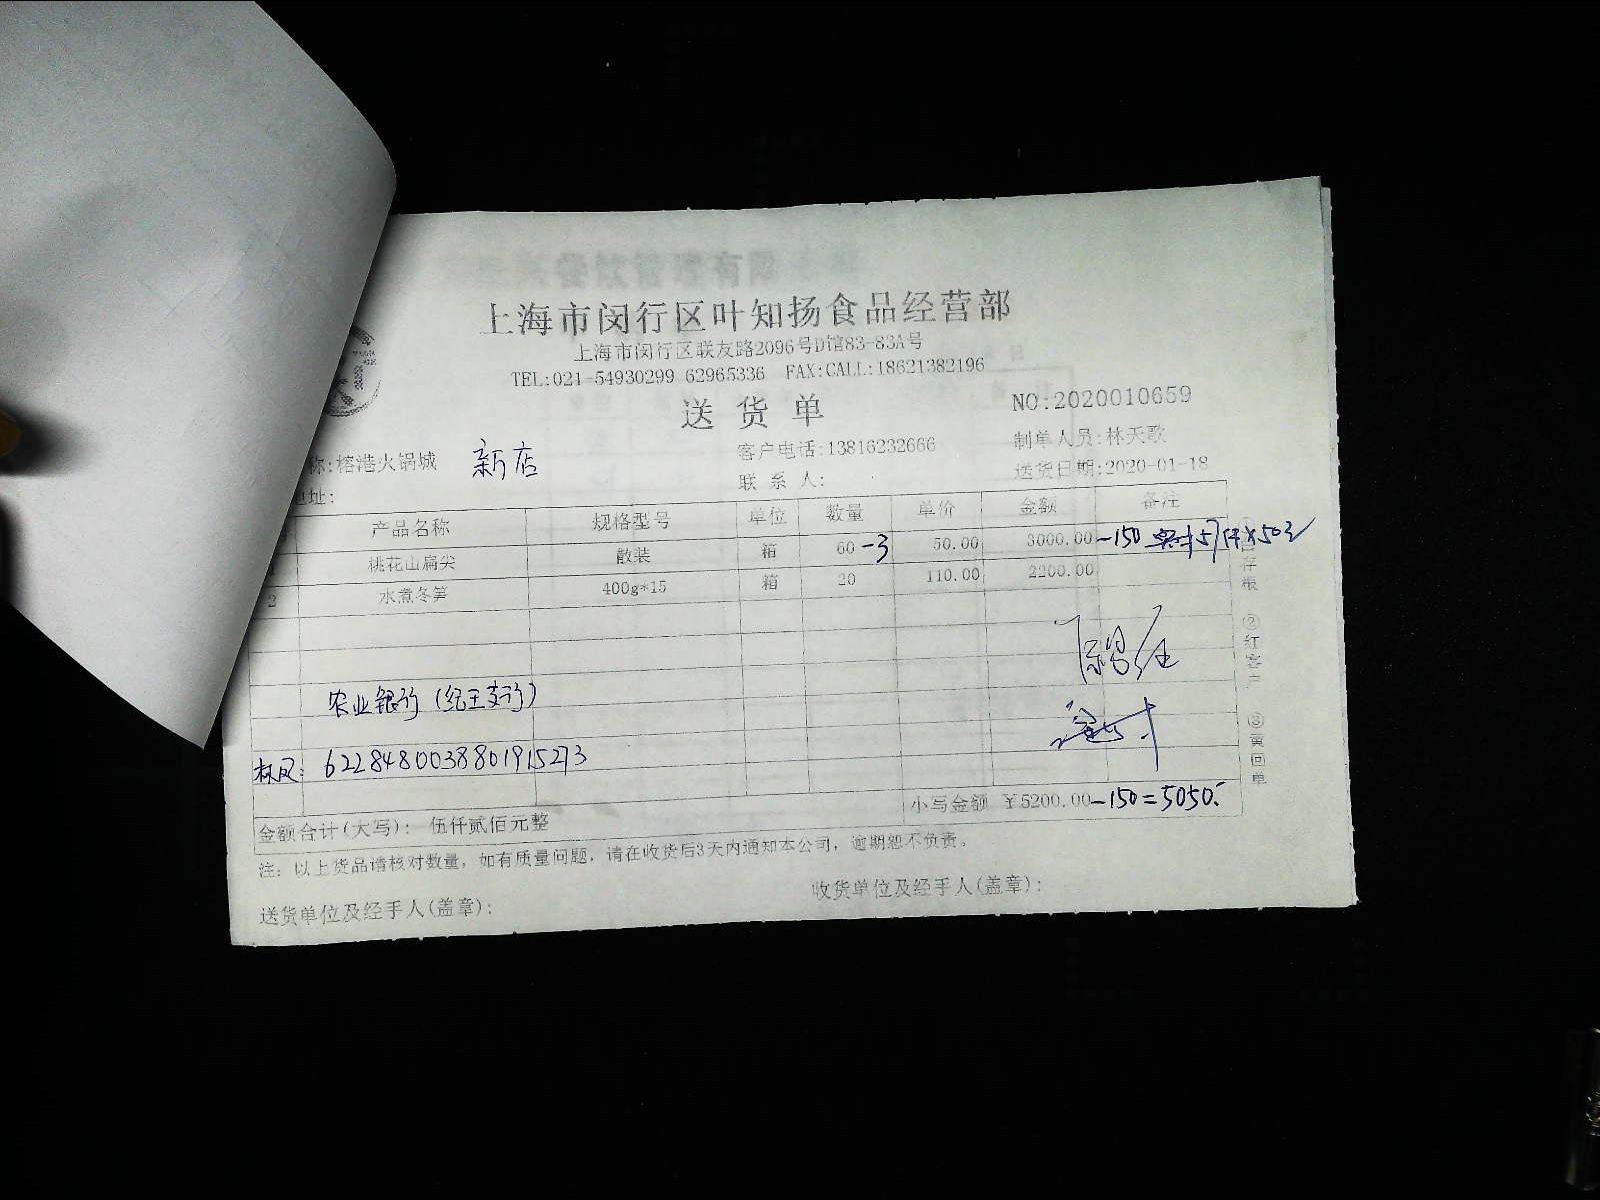 上海市闵行区叶知扬食品经营部
上海市闵行区联友路2096号D馆83-83A号
TEL:021-54930299 62965336 FAX:CALL:18621382196
送货单
NO:2020010659
称:榕港火锅城 新店
客户电话:13816232666
制单人员:林天歌
地址:
联系人:
送货日期:2020-01-18
产品名称 规格型号 单位 数量 单价 金额 备注
桃花山扁尖 散装 箱 60 -3 50.00 3000.00 -150 57件×50元
2 水煮冬笋 400g*15 箱 20 110.00 2200.00
存根 ②红客户 ③黄回单
农业银行(纪王支行)
林凤: 6228480038801915273
金额合计(大写): 伍仟贰佰元整 小写金额 ¥5200.00 -150=5050.
注: 以上货品请核对数量, 如有质量问题, 请在收货后3天内通知本公司, 逾期恕不负责。
送货单位及经手人(盖章):
收货单位及经手人(盖章):